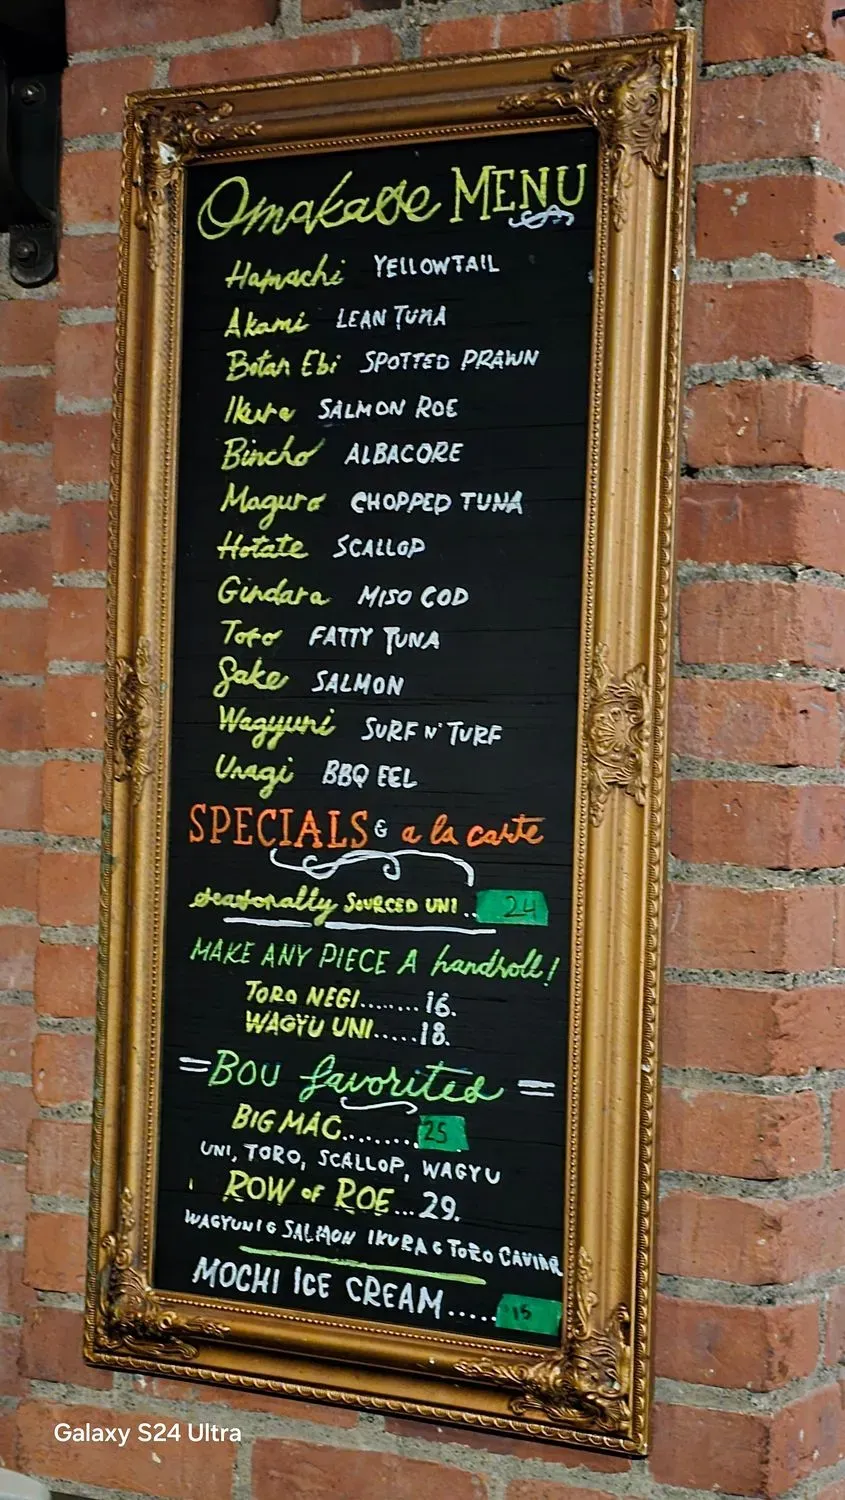 Omakase MENU
Hamachi YELLOWTAIL
Akami LEAN TUNA
Botan Ebi SPOTTED PRAWN
Ikura SALMON ROE
Bincho ALBACORE
Maguro CHOPPED TUNA
Hotate SCALLOP
Gindara MISO COD
Toro FATTY TUNA
Sake SALMON
Wagyuni SURF N' TURF
Unagi BBQ EEL
SPECIALS & a la carte
seasonally SOURCED UNI.. 24
MAKE ANY PIECE A handroll!
TORO NEGI........16.
WAGYU UNI.....18.
=BOU favorites=
BIG MAC.........25
UNI, TORO, SCALLOP, WAGYU
ROW of ROE...29.
WAGYUNI & SALMON IKURA & TORO CAVIAR
MOCHI ICE CREAM.....15
Galaxy S24 Ultra